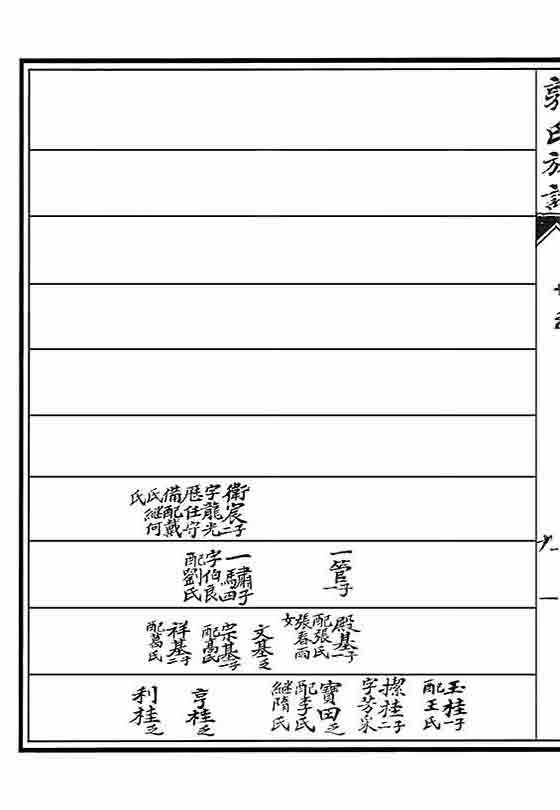 郭氏族譜
衛宸二子
字龍光
歷任守
備配戴
氏繼何
氏
一管一子
一驌四子
字伯良
配劉氏
殿基一子
配張氏
張春雨
女
文基之
宗基一子
配高氏
祥基二子
配葛氏
玉桂一子
配王氏
桂二子
字芳采
寶田之
配李氏
繼隋氏
亨桂之
利桂之